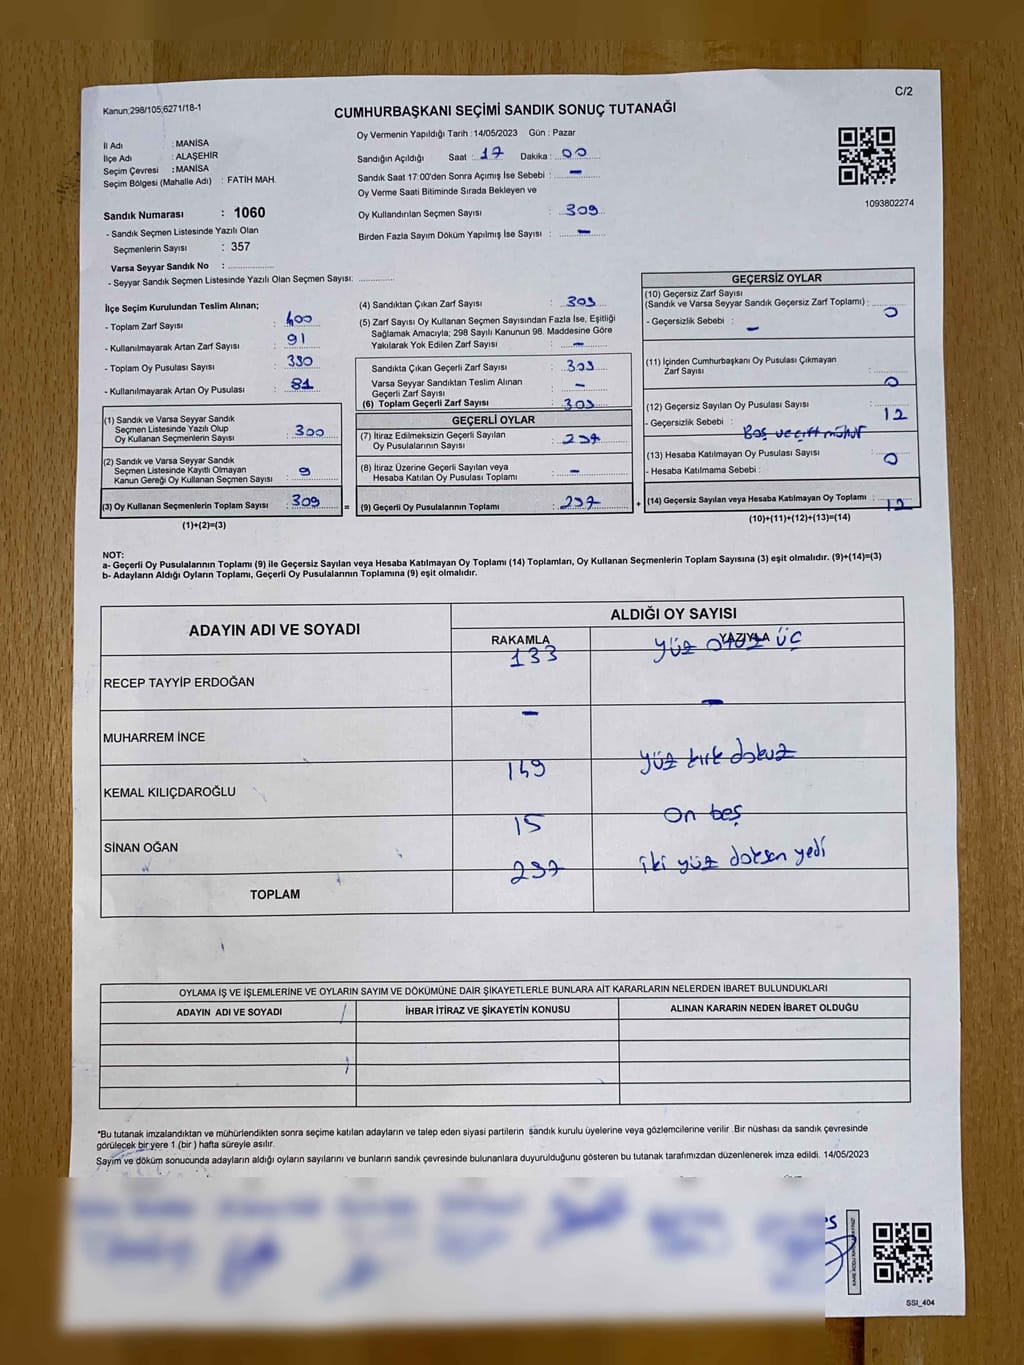 Kanun;298/105,6271/18-1
C/2
CUMHURBAŞKANI SEÇİMİ SANDIK SONUÇ TUTANAĞI
İl Adı : MANİSA
İlçe Adı : ALAŞEHİR
Seçim Çevresi : MANİSA
Seçim Bölgesi (Mahalle Adı) : FATİH MAH.
Sandık Numarası : 1060
- Sandık Seçmen Listesinde Yazılı Olan
Seçmenlerin Sayısı : 357
Varsa Seyyar Sandık No : ..............
- Seyyar Sandık Seçmen Listesinde Yazılı Olan Seçmen Sayısı: ............
Oy Vermenin Yapıldığı Tarih : 14/05/2023 Gün : Pazar
Sandığın Açıldığı Saat : 17 Dakika : 00
Sandık Saat 17:00'den Sonra Açımış İse Sebebi : -
Oy Verme Saati Bitiminde Sırada Bekleyen ve
Oy Kullandırılan Seçmen Sayısı : 309
Birden Fazla Sayım Döküm Yapılmış İse Sayısı : -
1093802274
İlçe Seçim Kurulundan Teslim Alınan;
- Toplam Zarf Sayısı : 400
- Kullanılmayarak Artan Zarf Sayısı : 91
- Toplam Oy Pusulası Sayısı : 390
- Kullanılmayarak Artan Oy Pusulası : 81
(1) Sandık ve Varsa Seyyar Sandık
Seçmen Listesinde Yazılı Olup
Oy Kullanan Seçmenlerin Sayısı : 300
(2) Sandık ve Varsa Seyyar Sandık
Seçmen Listesinde Kayıtlı Olmayan
Kanun Gereği Oy Kullanan Seçmen Sayısı : 9
(3) Oy Kullanan Seçmenlerin Toplam Sayısı : 309 =
(1)+(2)=(3)
(4) Sandıktan Çıkan Zarf Sayısı : 309
(5) Zarf Sayısı Oy Kullanan Seçmen Sayısından Fazla İse, Eşitliği
Sağlamak Amacıyla; 298 Sayılı Kanunun 98. Maddesine Göre
Yakılarak Yok Edilen Zarf Sayısı : -
Sandıkta Çıkan Geçerli Zarf Sayısı : 309
Varsa Seyyar Sandıktan Teslim Alınan
Geçerli Zarf Sayısı : -
(6) Toplam Geçerli Zarf Sayısı : 309
GEÇERLİ OYLAR
(7) İtiraz Edilmeksizin Geçerli Sayılan
Oy Pusulalarının Sayısı : 297
(8) İtiraz Üzerine Geçerli Sayılan veya
Hesaba Katılan Oy Pusulası Toplamı : -
(9) Geçerli Oy Pusulalarının Toplamı : 297 +
GEÇERSİZ OYLAR
(10) Geçersiz Zarf Sayısı
(Sandık ve Varsa Seyyar Sandık Geçersiz Zarf Toplamı) : 0
- Geçersizlik Sebebi : -
(11) İçinden Cumhurbaşkanı Oy Pusulası Çıkmayan
Zarf Sayısı : 0
(12) Geçersiz Sayılan Oy Pusulası Sayısı : 12
- Geçersizlik Sebebi : Boş ve çift mühür
(13) Hesaba Katılmayan Oy Pusulası Sayısı : 0
- Hesaba Katılmama Sebebi :
(14) Geçersiz Sayılan veya Hesaba Katılmayan Oy Toplamı : 12
(10)+(11)+(12)+(13)=(14)
NOT:
a- Geçerli Oy Pusulalarının Toplamı (9) ile Geçersiz Sayılan veya Hesaba Katılmayan Oy Toplamı (14) Toplamları, Oy Kullanan Seçmenlerin Toplam Sayısına (3) eşit olmalıdır. (9)+(14)=(3)
b- Adayların Aldığı Oyların Toplamı, Geçerli Oy Pusulalarının Toplamına (9) eşit olmalıdır.
ADAYIN ADI VE SOYADI
ALDIĞI OY SAYISI
RAKAMLA YAZIYLA
RECEP TAYYİP ERDOĞAN 133 yüz otuz üç
MUHARREM İNCE - -
KEMAL KILIÇDAROĞLU 149 yüz kırk dokuz
SİNAN OĞAN 15 On beş
TOPLAM 297 iki yüz doksan yedi
OYLAMA İŞ VE İŞLEMLERİNE VE OYLARIN SAYIM VE DÖKÜMÜNE DAİR ŞİKAYETLERLE BUNLARA AİT KARARLARIN NELERDEN İBARET BULUNDUKLARI
ADAYIN ADI VE SOYADI İHBAR İTİRAZ VE ŞİKAYETİN KONUSU ALINAN KARARIN NEDEN İBARET OLDUĞU
*Bu tutanak imzalandıktan ve mühürlendikten sonra seçime katılan adayların ve talep eden siyasi partilerin sandık kurulu üyelerine veya gözlemcilerine verilir .Bir nüshası da sandık çevresinde
görülecek bir yere 1 (bir ) hafta süreyle asılır.
Sayım ve döküm sonucunda adayların aldığı oyların sayılarını ve bunların sandık çevresinde bulunanlara duyurulduğunu gösteren bu tutanak tarafımızdan düzenlenerek imza edildi. 14/05/2023
SSI_404